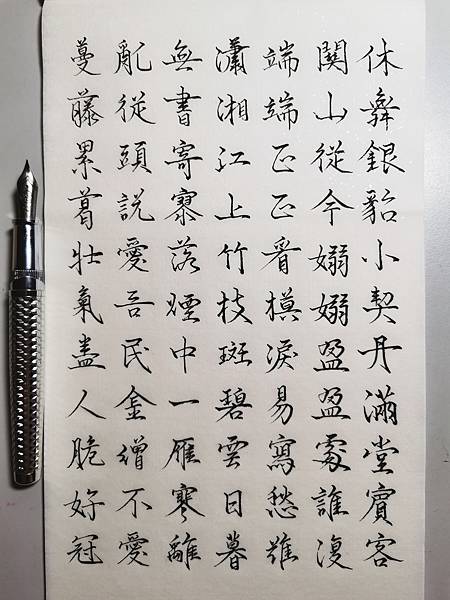 休舞銀貂小契丹滿堂賓客
關山從今嫋嫋盈盈處誰復
端端正正看模淚易寫愁難
瀟湘江上竹枝斑碧雲日暮
無書寄寥落煙中一雁寒離
亂從頭說愛吾民金繒不愛
蔓藤累葛壯氣盡人脆好冠